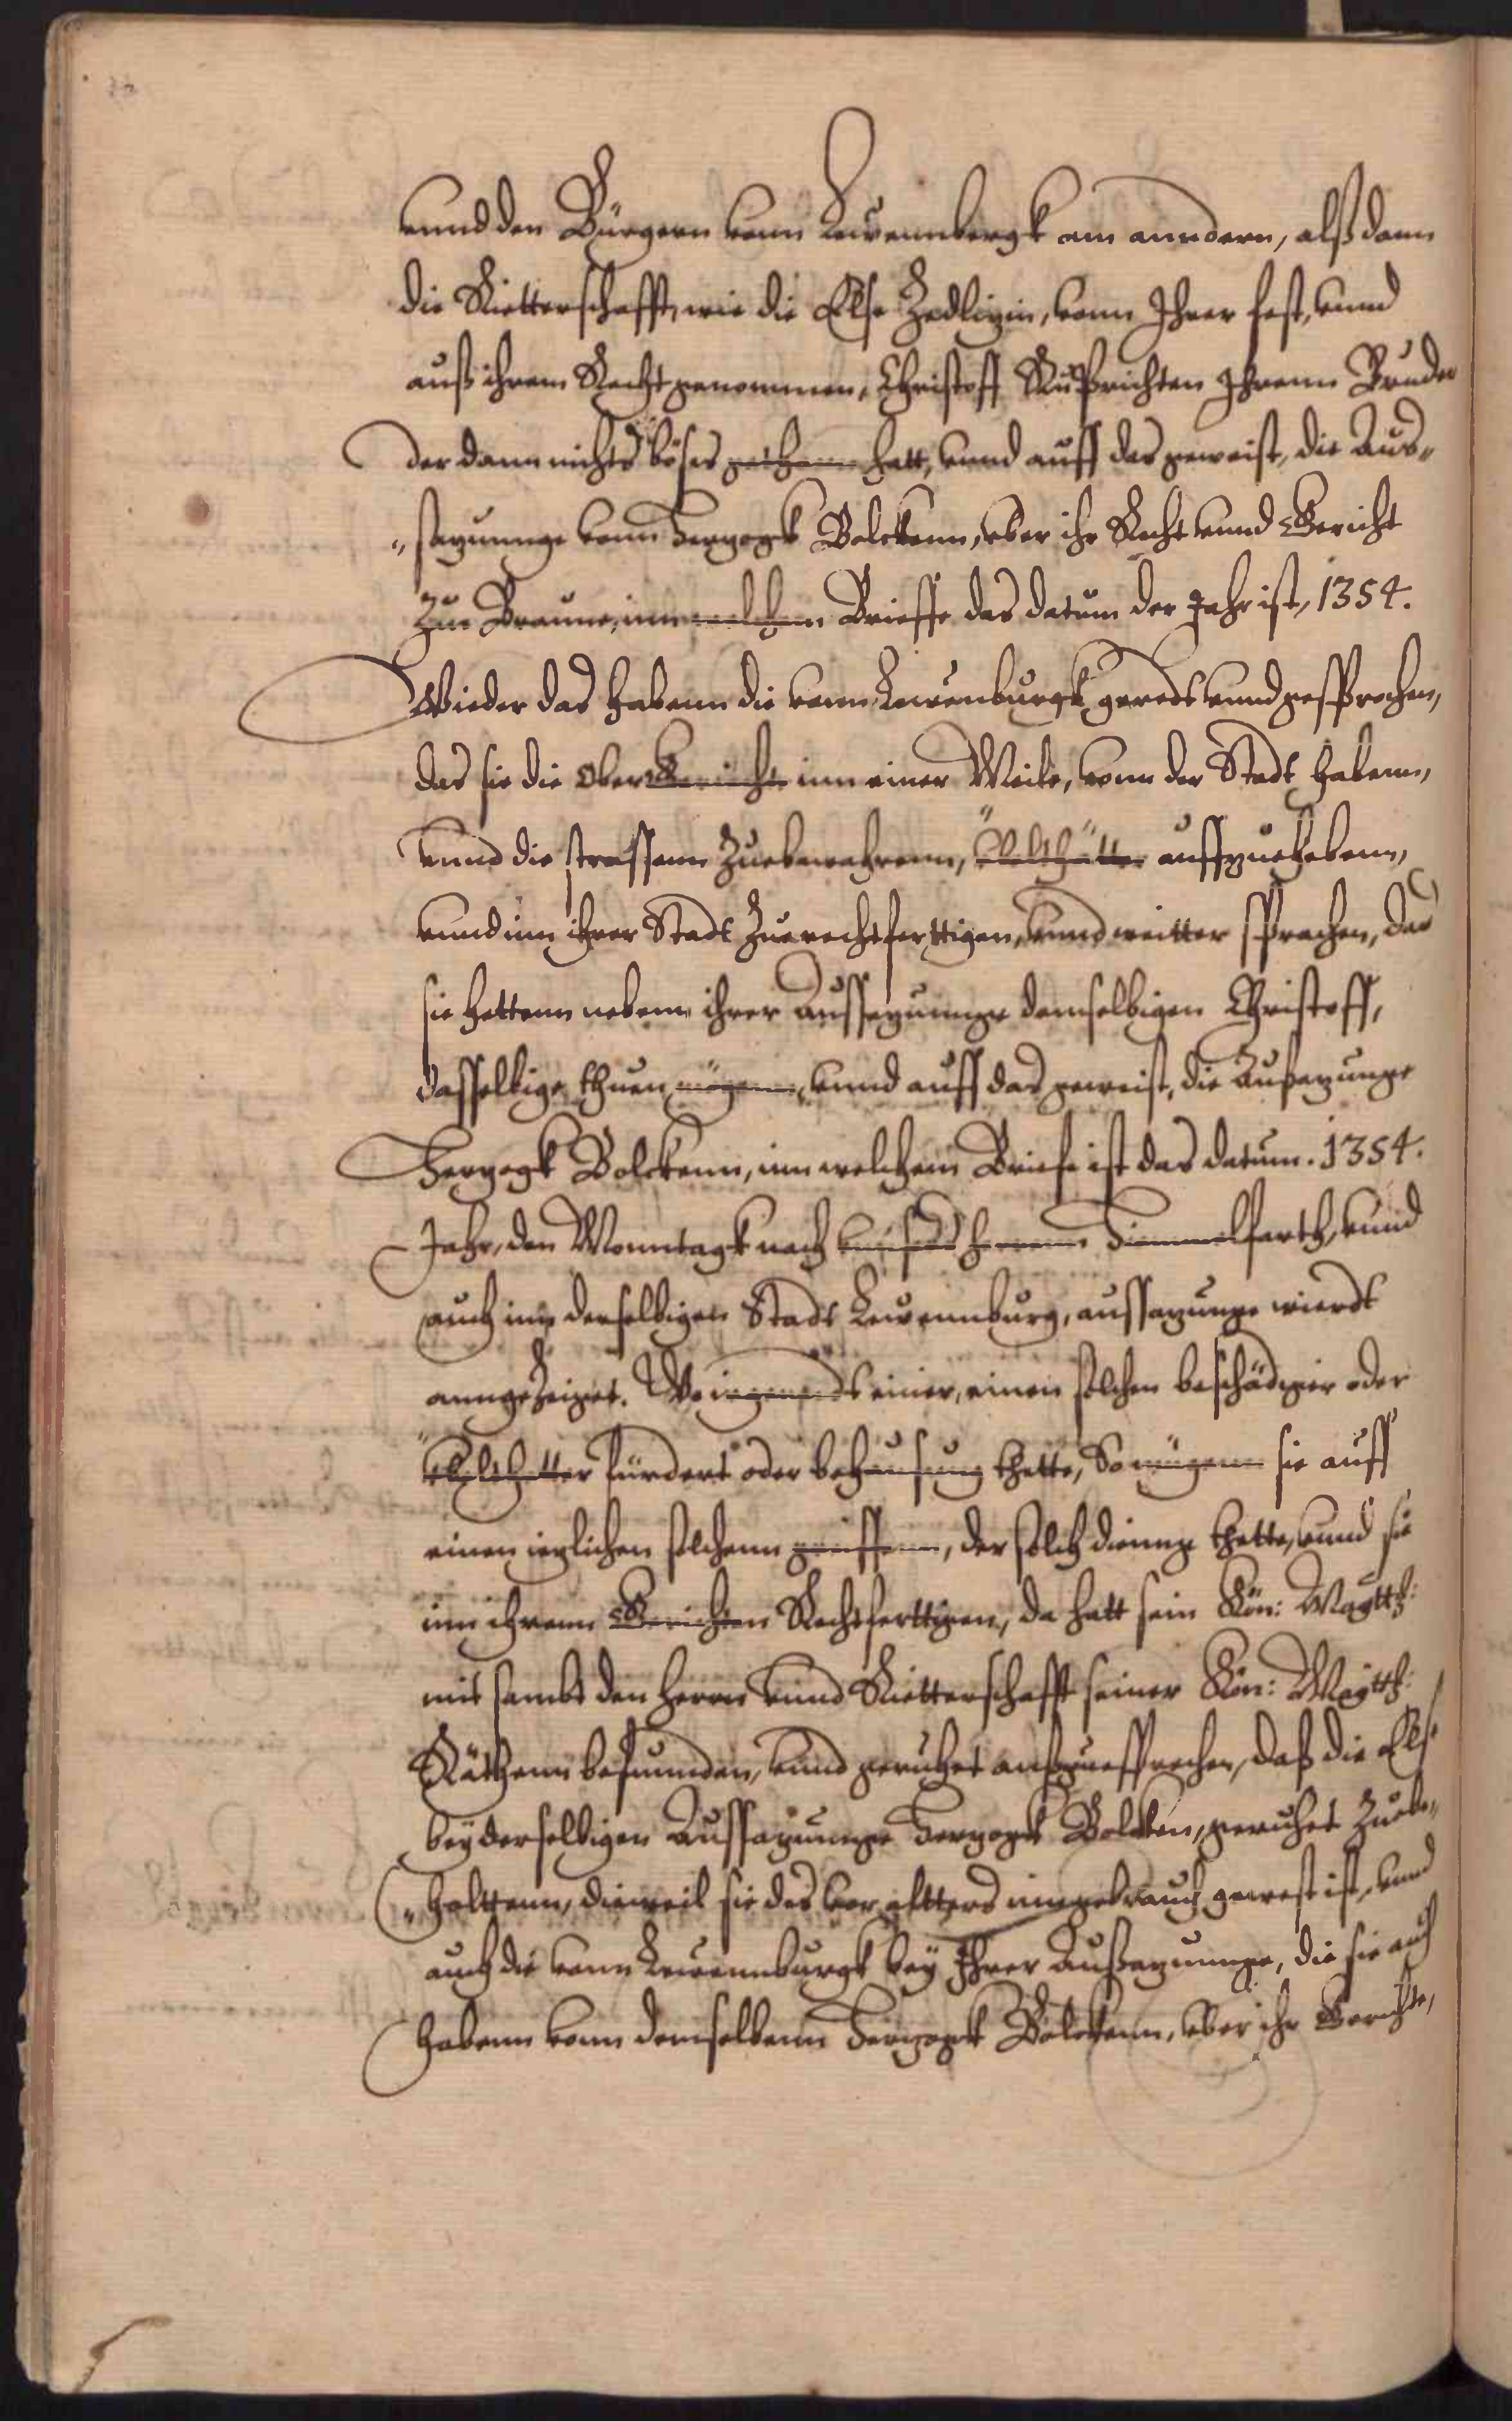 vnnd den Bürgern vonn Lewennbergk am anndern, alß dann
die Rietterschafft, wie die Else Zedlizin, vonn Ihrer fest, vnnd
auß ihrem Recht genommen, Christoff Rußrichten Ihrenn Bruder
der dann nichts böses gethann hatt, vnnd auff das geweist, die Aus„
„sazunnge vonn Herzogk Bolckenn, vber ihr Recht vnnd Gericht
Zur Braune, inn welchem Brieffe das datum der Jahr ist, 1354.
Wieder das habenn die vonn Lewenburgk geredt vnnd gesprochen,
das sie die Ober Gerichte inn einer Meile, vonn der Stadt habenn,
vnnd die strassenn Zuebewahrenn, Vbelthäter auffzuehebenn,
vnnd inn ihrer Stadt Zuerechtferttigen, vnnd weitter sprachen, das
sie hettenn nebenn ihrer Aussazunnge demselbigen Christoff,
dasselbige thuen mögenn, vnnd auff das geweist, die Außazunge
Herzogk Bolckenn, inn welchem Briefe ist das datum. 1354.
Jahr, den Monntagk nach vnsers herrnn Himmelfarth, vnnd
auch inn derselbigen Stadt Lewennburg, aussazunge wierdt
anngeZeiget. Wo irgenndt einer, einen solchen beschädiger oder
vbelthetter fürdert oder behausung thette, So mügenn sie auff
einen ieglichen solchenn greiffenn, der solch dinng thette, vnnd sie
inn ihrenn Gerichten Rechtferttigen, da hatt sein Kön: Maytth:
mit sambt den herrn vnnd Rietterschafft seiner Kön: Maytth:
Räthenn befunnden, vnnd geruhet außzuesprechen, daß die Else
bey derselbigen Aussazunnge Herzogk Bolcken, geruhet Zuebe„
„halttenn, dieweil sie des vor altters inngebrauch gewest ist, vnnd
auch die vonn Lewennburgk bey Ihrer Außazunnge, die sie auch
habenn vonn demselbenn Herzogk Bolckenn, vber ihr Gerichte,